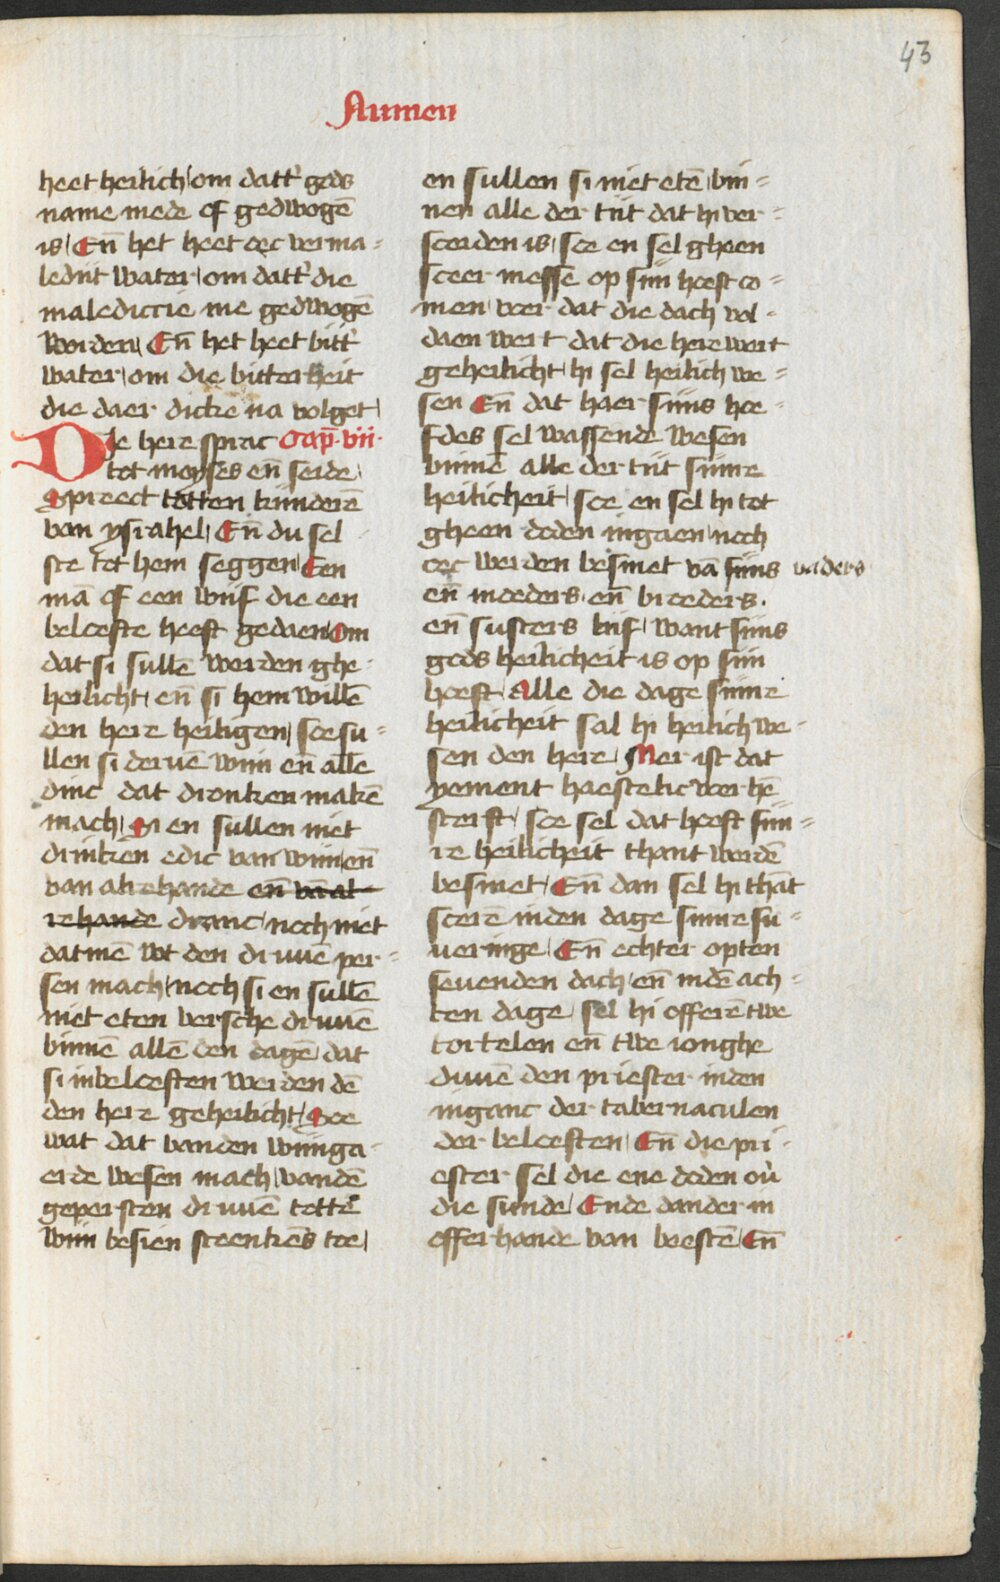 43
Numen
heet heilich / om datt' gods
name mede of gedwogē
is / En̄ het heet oec verma⸗
ledijt water / om datt' die
maledictie me gedwogē
worden / En̄ het heet bitt'
water / om die bitterheit
die daer dicke na volget /
Die here sprac Cap̄. vii.
tot moyses en̄ seide /
Spreect totten kijnderē
van ysrahel / En̄ du sel
ste tot hem seggen / Een
mā of een wijf die een
beloefte heeft gedaen / Om
dat si sullē werden ghe⸗
heilicht / en̄ si hem willē
den here heiligen / soe su⸗
llen si deruē wijn en̄ alle
dinc dat dronken makē
mach / Si en sullen niet
drinken edic van wijn / en̄
van alrehande en̄ vā al
rehande dranc / noch niet
datmē wt den druuē per⸗
sen mach / noch si en sullē
niet eten versche druuē
binnē allē den dagē dat
si in beloeften werden dē
den here geheilicht / Soe
wat dat vanden wijnga⸗
erde wesen mach / vandē
gepersten druuē totte
wijn besien steenkēs toe /
en sullen si niet etē / bin⸗
nen alle der tijt dat hi ver⸗
sceiden is / soe en sel gheen
sceer messe op sijn hoeft co⸗
men / voer dat die dach vol⸗
daen wert dat die here wert
geheilicht / hi sel heilich we⸗
sen En̄ dat haer sijns hoe⸗
fdes sel wassende wesen
binnē alle der tijt sijnre
heilicheit / soe en sel hi tot
gheen doden ingaen / noch
oec werden besmet vā sijns vaders
en̄ moeders. en̄ broeders.
en̄ susters lijf / want sijns
gods heilicheit is op sijn
hoeft / Alle die dage sijnre
heilicheit sal hi heilich we⸗
sen den here / Mer ist dat
yement haestelic voer hē
sterft / soe sel dat hoeft sijn⸗
re heilicheit thant werdē
besmet / En̄ dan sel hi thāt
scerē in den dage sijnre su⸗
ueringe / En̄ echter opten
seuenden dach / en̄ in dē ach⸗
ten dage / sel hi offerē twe
tortelen en̄ twe ionghe
duuē den priester in den
inganc der tabernaculen
der beloeften / En̄ die pri⸗
ester sel die ene doden ou'
die sunde / Ende dander in
offerhande van beestē / En̄